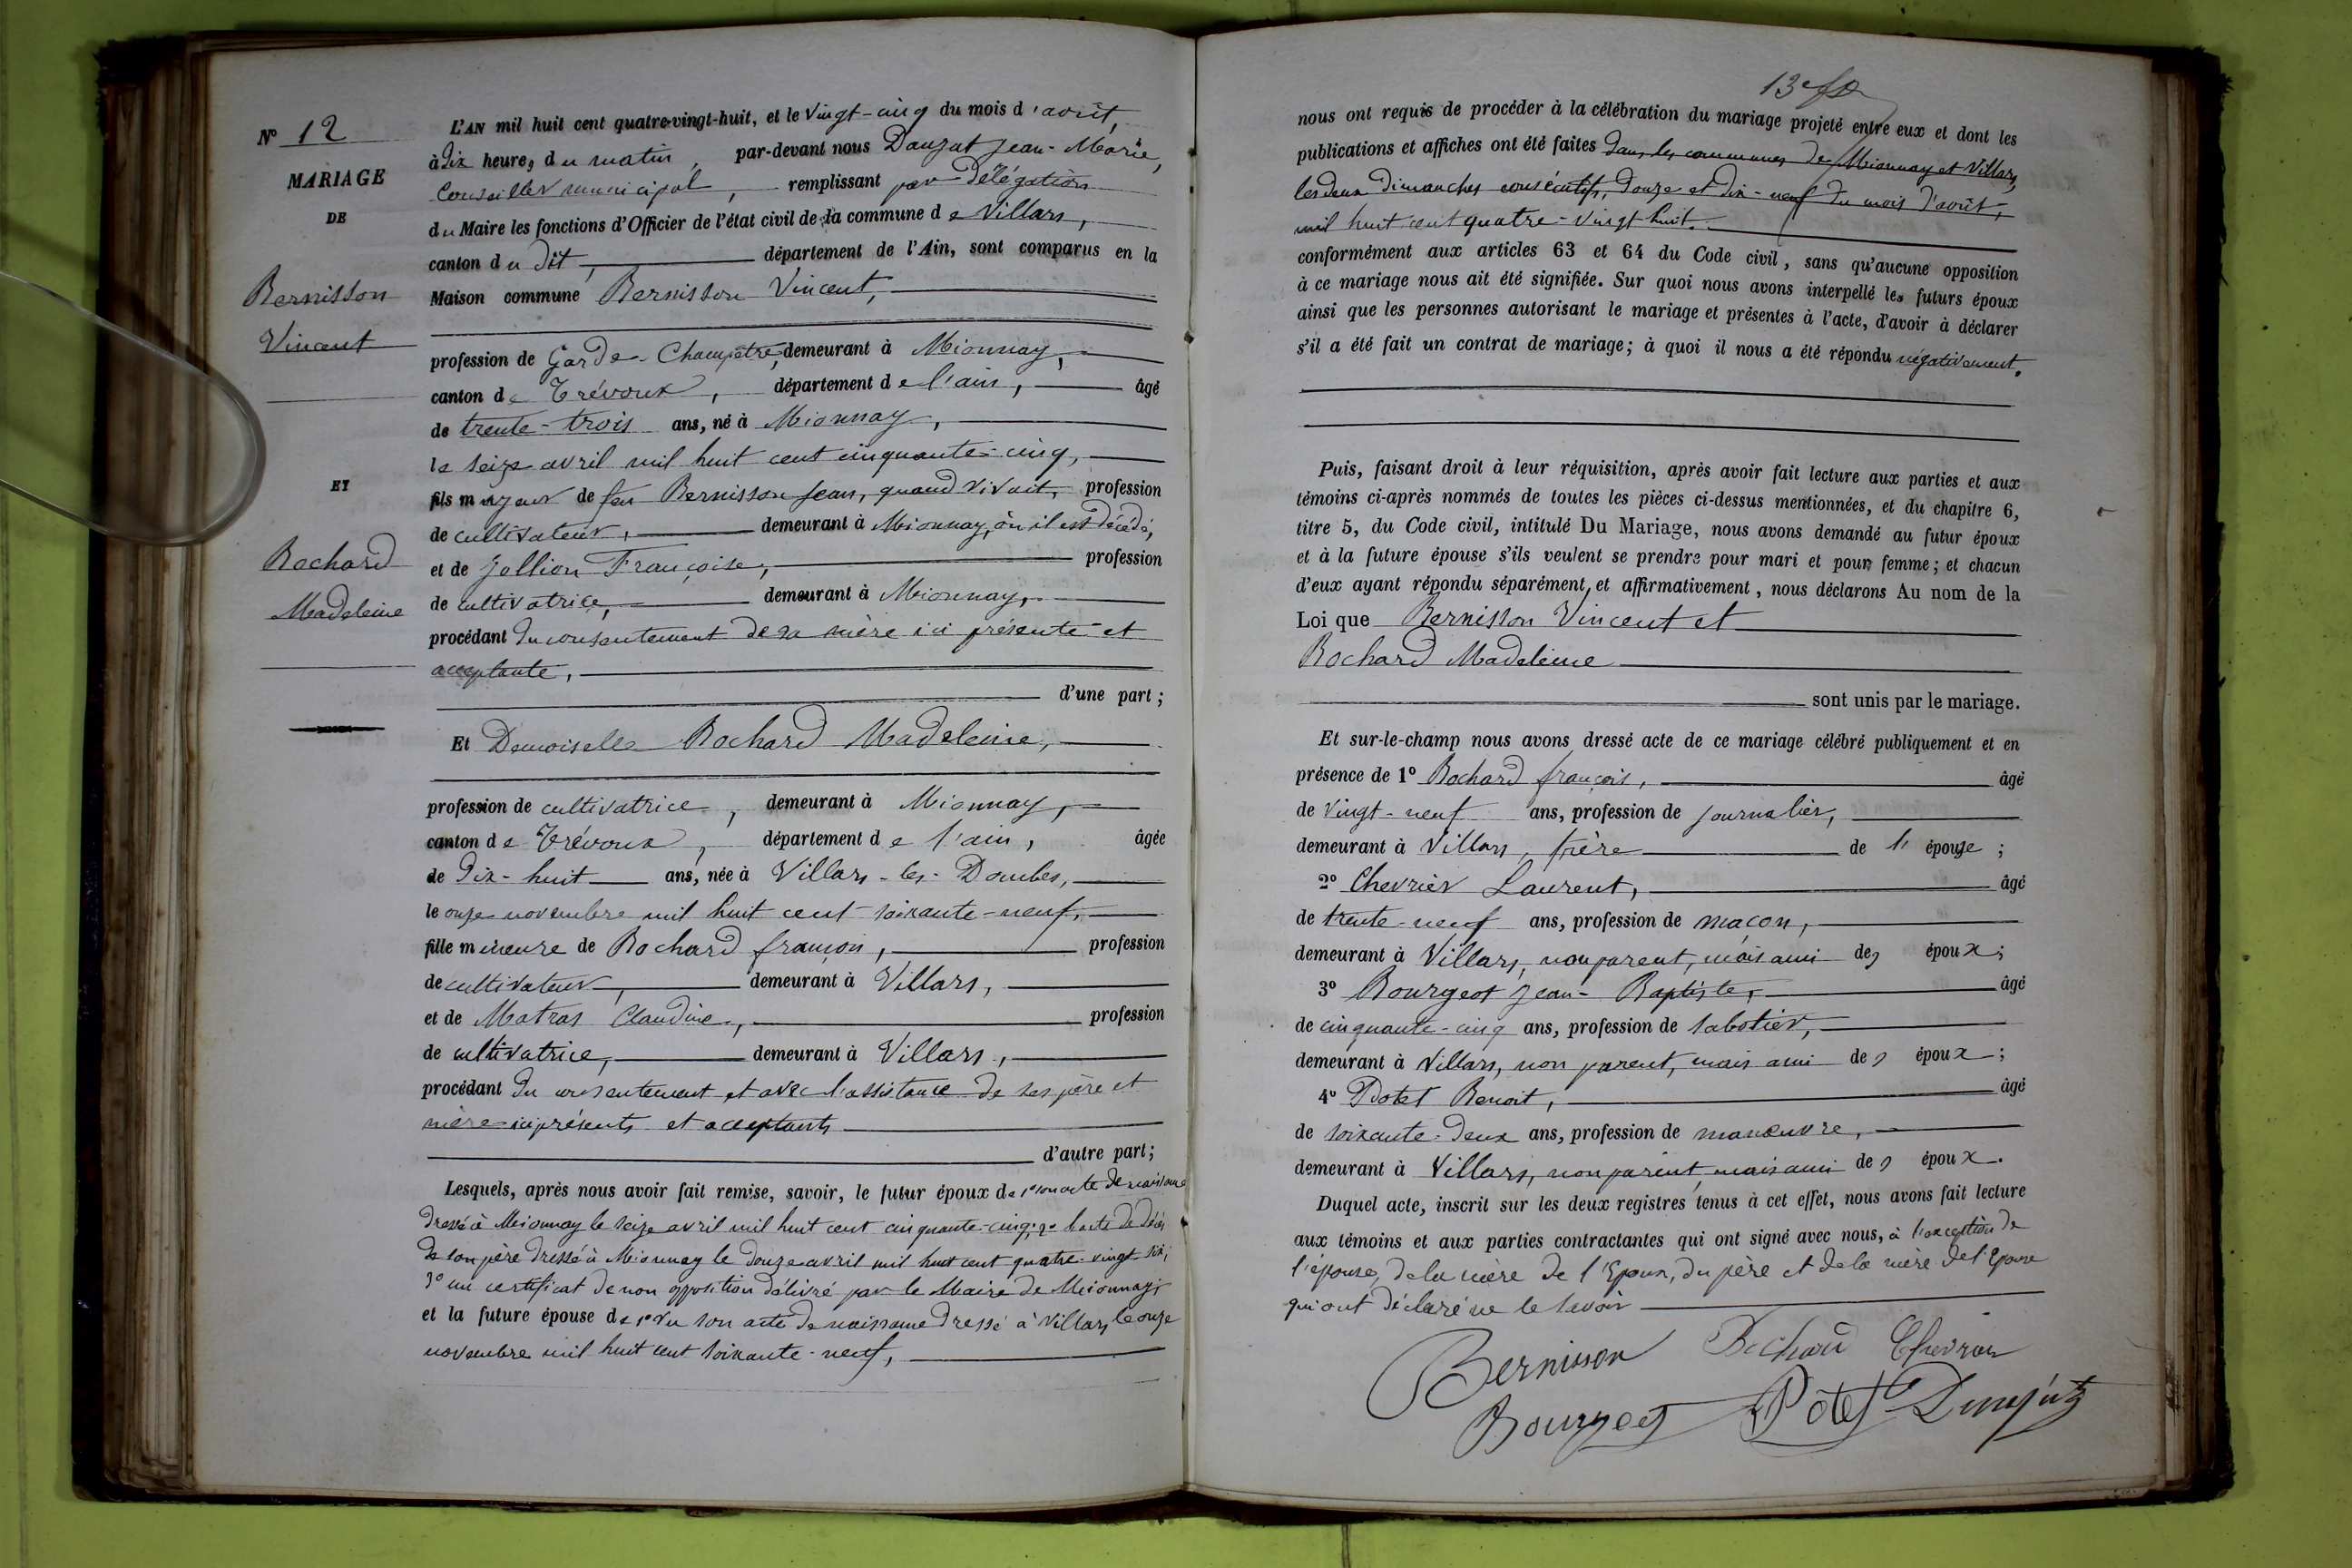 N° 12
MARIAGE
DE
Bernisson
Vincent
ET
Rochard
Madeleine
L'AN mil huit cent quatre-vingt-huit, et le vingt-cinq du mois d'août,
à dix heures du matin, par-devant nous Dauzat Jean-Marie,
Conseiller municipal, remplissant par délégation
du Maire les fonctions d'Officier de l'état civil de la commune de Villars,
canton du dit, département de l'Ain, sont comparus en la
Maison commune Bernisson Vincent,
profession de Garde-Champêtre, demeurant à Mionnay,
canton de Trévoux, département de l'ain, âgé
de trente-trois ans, né à Mionnay,
le seize avril mil huit cent cinquante-cinq,
fils majeur de feu Bernisson Jean, quand vivait, profession
de cultivateur, demeurant à Mionnay, où il est décédé,
et de Jollion Françoise, profession
de cultivatrice, demeurant à Mionnay,
procédant du consentement de sa mère ici présente et
acceptante,
d'une part;
Et Demoiselle Rochard Madeleine,
profession de cultivatrice, demeurant à Mionnay,
canton de Trévoux, département de l'ain, âgée
de dix-huit ans, née à Villars-les-Dombes,
le onze novembre mil huit cent soixante-neuf,
fille mineure de Rochard françois, profession
de cultivateur, demeurant à Villars,
et de Matras Claudine, profession
de cultivatrice, demeurant à Villars,
procédant du consentement et avec l'assistance de ses père et
mère ici présents et acceptants
d'autre part;
Lesquels, après nous avoir fait remise, savoir, le futur époux de 1° son acte de naissance
dressé à Mionnay le seize avril mil huit cent cinquante-cinq; 2° l'acte de décès
de son père dressé à Mionnay le douze avril mil huit cent quatre-vingt six,
3° un certificat de non opposition délivré par le Maire de Mionnay;
et la future épouse de 1° du son acte de naissance dressé à Villars le onze
novembre mil huit cent soixante-neuf,
13e
nous ont requis de procéder à la célébration du mariage projeté entre eux et dont les
publications et affiches ont été faites dans les communes de Mionnay et Villars,
les deux dimanches consécutifs, douze et dix-neuf du mois d'août,
mil huit cent quatre-vingt huit.
conformément aux articles 63 et 64 du Code civil, sans qu'aucune opposition
à ce mariage nous ait été signifiée. Sur quoi nous avons interpellé les futurs époux
ainsi que les personnes autorisant le mariage et présentes à l'acte, d'avoir à déclarer
s'il a été fait un contrat de mariage; à quoi il nous a été répondu négativement.
Puis, faisant droit à leur réquisition, après avoir fait lecture aux parties et aux
témoins ci-après nommés de toutes les pièces ci-dessus mentionnées, et du chapitre 6,
titre 5, du Code civil, intitulé Du Mariage, nous avons demandé au futur époux
et à la future épouse s'ils veulent se prendre pour mari et pour femme; et chacun
d'eux ayant répondu séparément et affirmativement, nous déclarons Au nom de la
Loi que Bernisson Vincent et
Rochard Madeleine
sont unis par le mariage.
Et sur-le-champ nous avons dressé acte de ce mariage célébré publiquement et en
présence de 1° Rochard françois, âgé
de vingt-neuf ans, profession de journalier,
demeurant à Villars, frère de l'épouse;
2° Chevrier Laurent, âgé
de trente-neuf ans, profession de maçon,
demeurant à Villars, non parent, mais ami des époux;
3° Bourgeot Jean-Baptiste, âgé
de cinquante-cinq ans, profession de sabotier,
demeurant à Villars, non parent, mais ami des époux;
4° Potet Benoit, âgé
de soixante-deux ans, profession de manœuvre,
demeurant à Villars, non parent, mais ami des époux.
Duquel acte, inscrit sur les deux registres tenus à cet effet, nous avons fait lecture
aux témoins et aux parties contractantes qui ont signé avec nous, à l'exception de
l'épouse, de la mère de l'Epoux, du père et de la mère de l'Epouse
qui ont déclaré ne le savoir
Bernisson Rochard
Bourgeot Potet